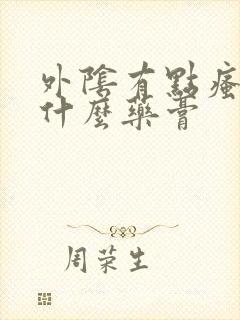 外陰有點瘙
什麼藥膏
周荣生